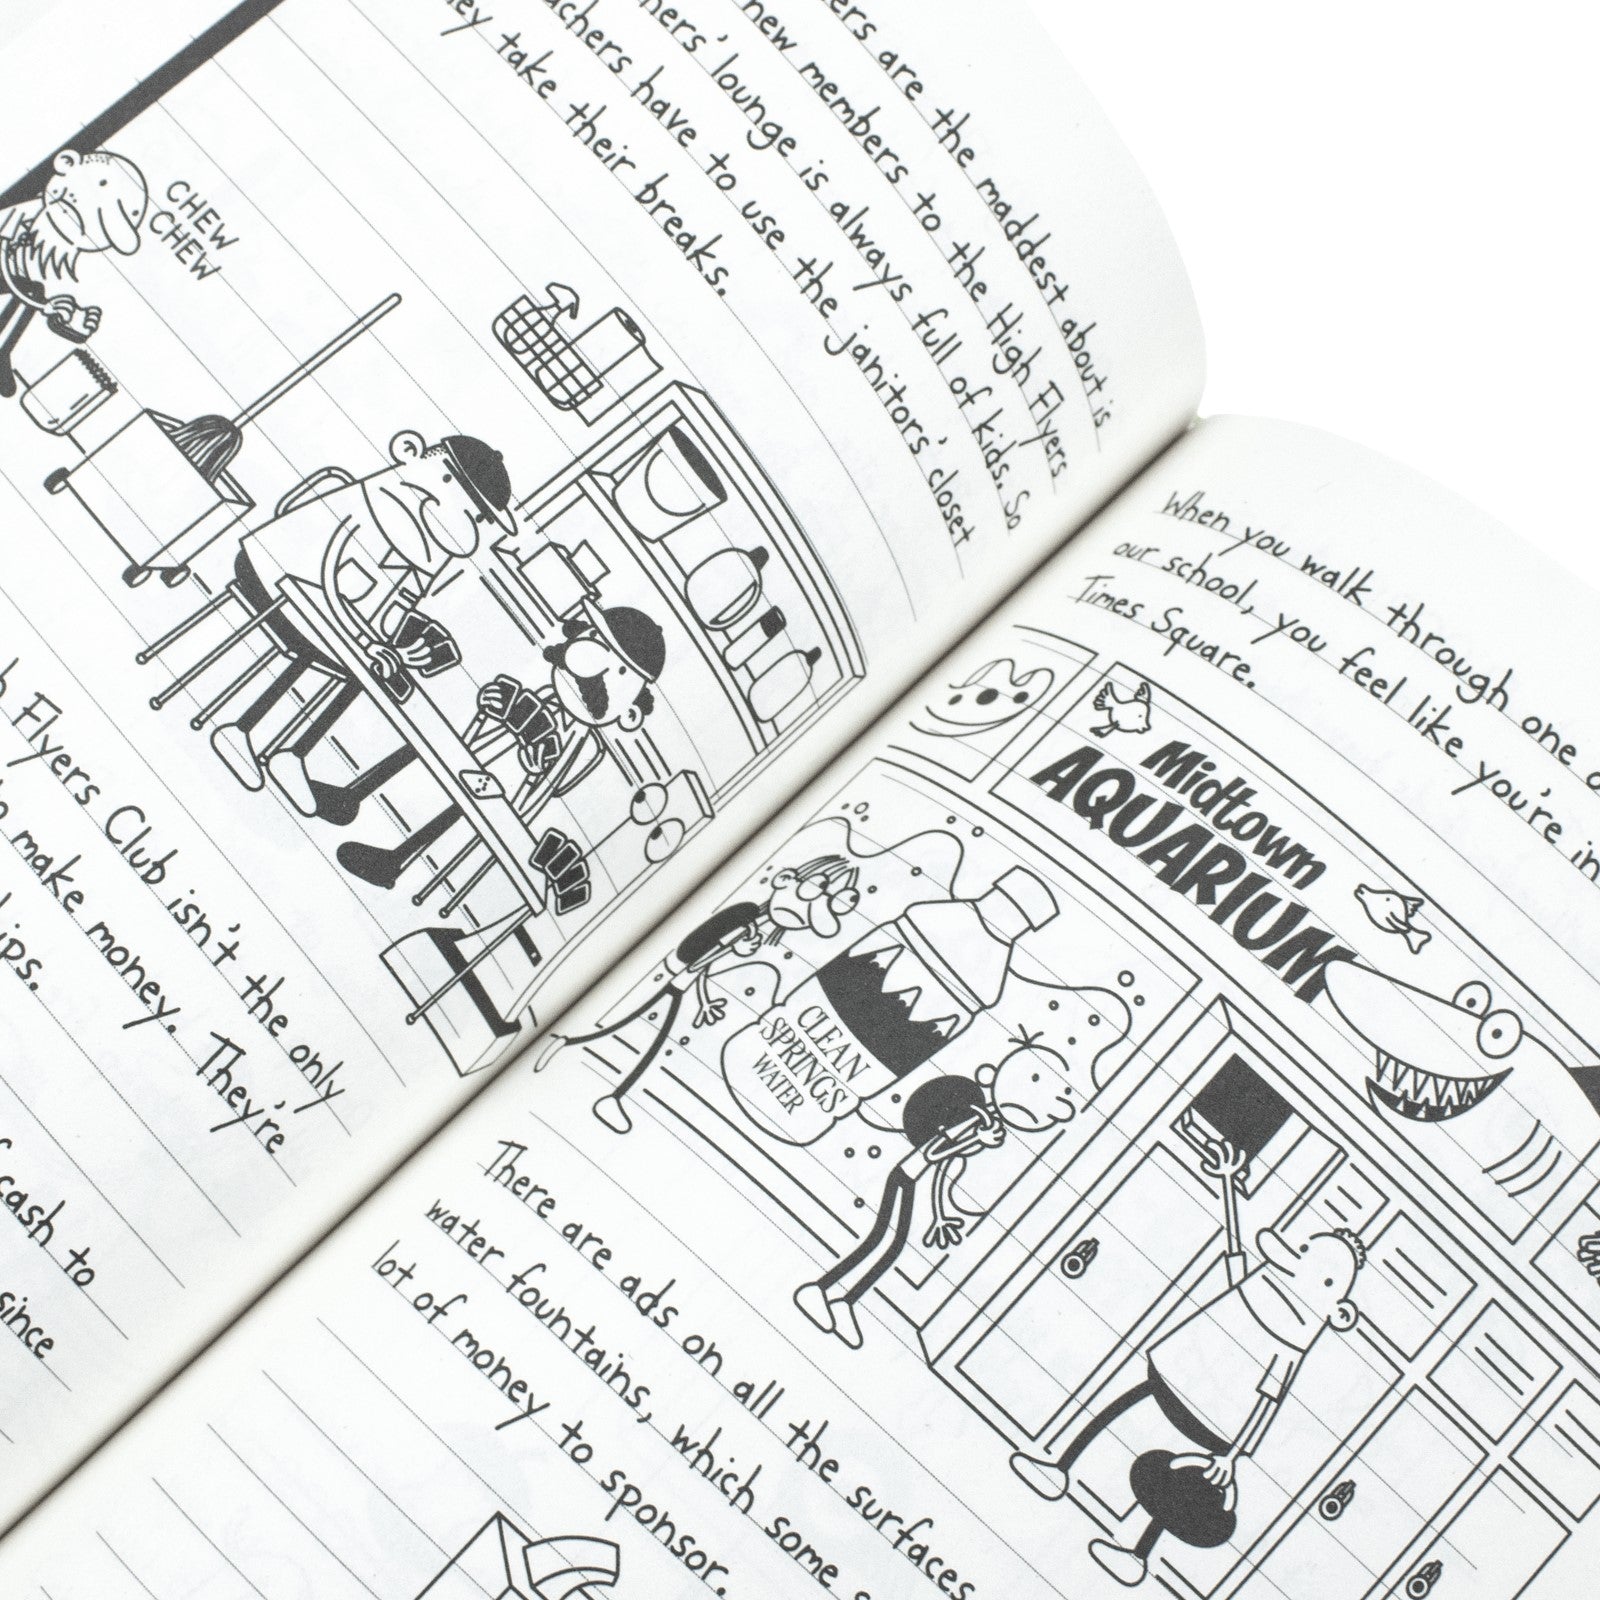 ers are the maddest about is
new members to the High Flyers
lounge is always full of kids. So
have to use the janitors' closet
take their breaks.
CHEW
CHEW
Flyers Club isn't the only
make money. They're
cash to
since
When you walk through one
our school, you feel like you're in
Times Square.
Midtown
AQUARIUM
CLEAN
SPRINGS
WATER
There are ads on all the surfaces
water fountains, which some
lot of money to sponsor.